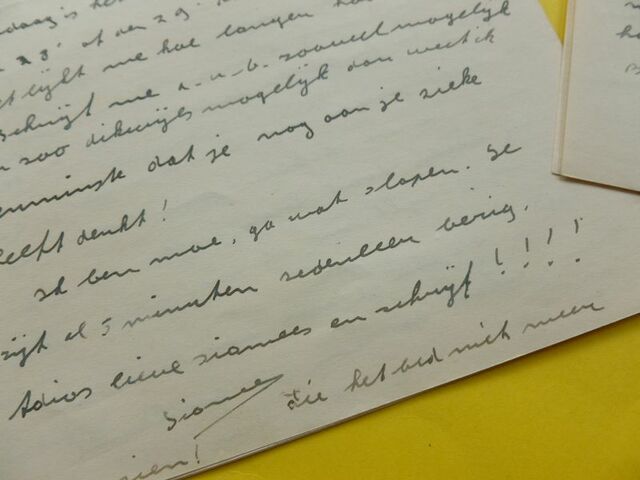 is het
23 of den 29
lijkt me hoe langer hoe
schrijft me a-u-b. zooveel mogelijk
zoo dikwijls mogelijk dan weet ik
tenminste dat je nog aan je zieke
denkt!
Ik ben moe, ga wat slapen. Je
zijt al 5 minuten bezig.
Adios lieve siamees en schrijf!!!!
Siamee
die het bed niet meer
zien!